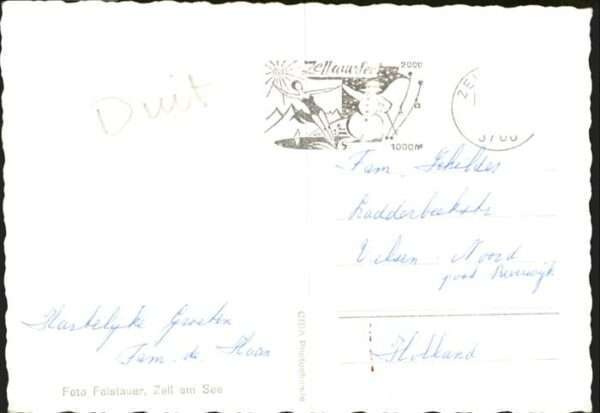 Duit
Zell am See
2000
1000M
ZE
5700
Fam. Schilder
Ladderbeekstr
Velsen - Noord
post Beverwijk
Holland
Hartelijke Groeten
Fam. de Haan
Foto Falstauer, Zell am See